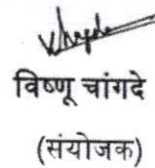 विष्णू चांगदे
(संयोजक)